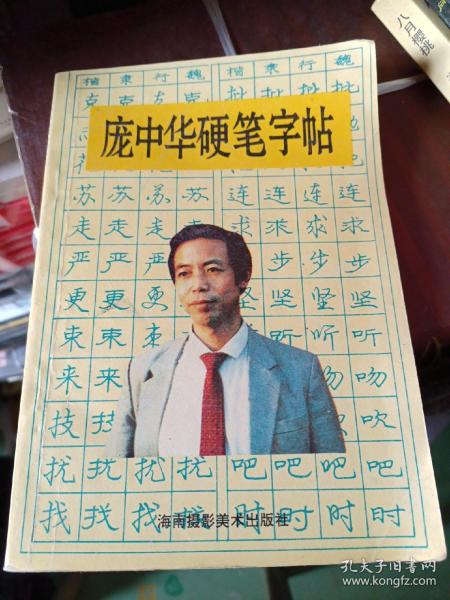 八月樱桃
楷 隶 行 魏 楷 隶 行 魏
克 克 克 克 批 批 批 批
庞中华硬笔字帖
苏 苏 苏 苏 连 连 连 连
走 走 走 走 求 求 求 求
严 严 严 步 步 步
更 更 更 坚 坚 坚 坚
束 束 束 听 听 听
来 来 吻 吻
技 技 吹
扰 扰 扰 扰 吧 吧 吧 吧
找 找 找 找 时 时 时 时
海南摄影美术出版社
孔夫子旧书网
www.kongfz.com